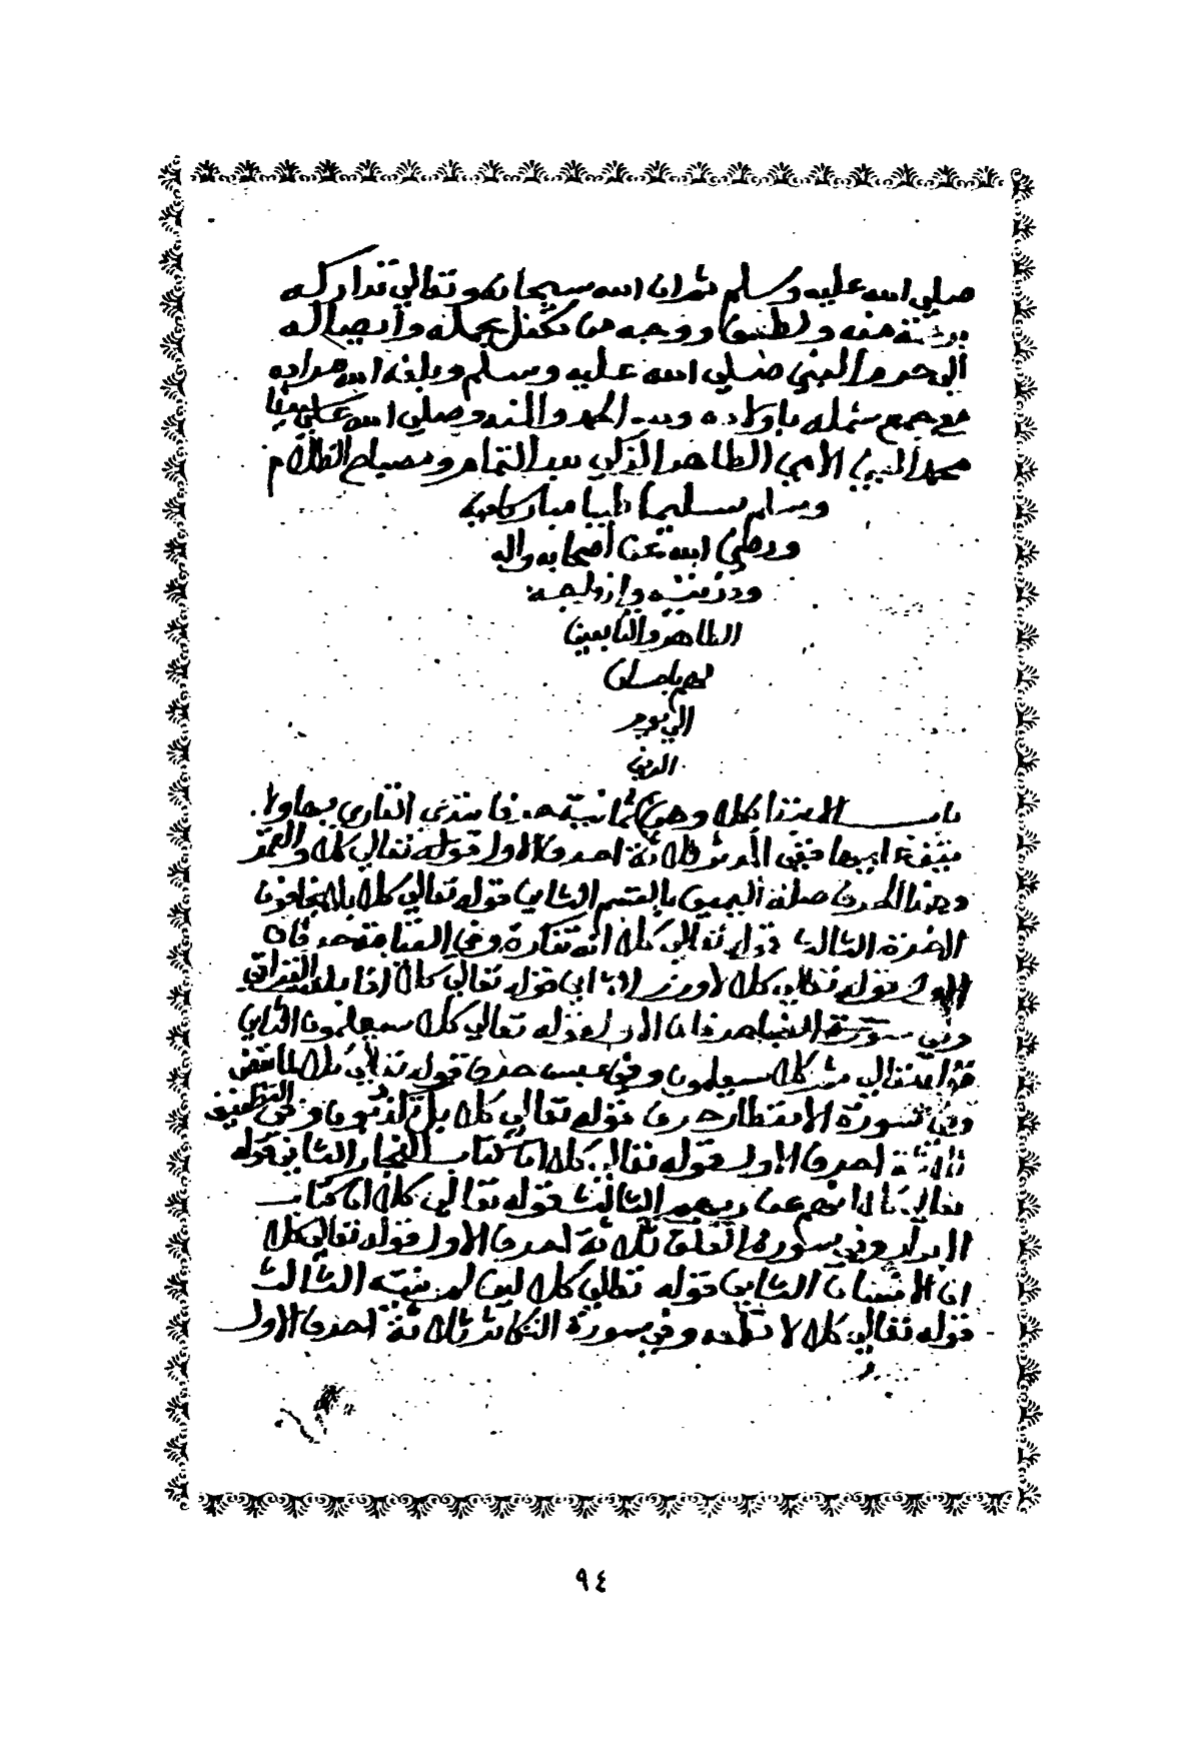 صلي الله عليه وسلم ثم ان الله سبحانه وتعالي تداركه
منه ولطف ووجه من تكفل بحمله وايصاله
الي حرم النبي صلي الله عليه وسلم وبلغه الله مراده
مع جمع شمله باولاده ولله الحمد والمنه وصلي الله علي
محمد النبي الامي الطاهر الزكي بدر التمام ومصباح الظلام
وسلم تسليما طيبا مباركا فيه
ورضي الله عن اصحابه واله
وذريته وازواجه
الطاهر والتابعين
لهم باحسان
الي يوم
الدين
باب الابتدا بكلا وهي ثمانية عشر القاري بها ولا
ففي المدثر ثلاثة احرف الاول قوله تعالي كلا والقمر
وهذا الحرف صلة اليمين بالقسم الثاني قوله تعالي كلا بل لا يخافون
الاخرة الثالث قوله تعالي كلا انه تذكرة وفي القيامة حرفان
الاول قوله تعالي كلا لا وزر الثاني قوله تعالي كلا اذا بلغت التراقي
وفي سورة النبا حرفان الاول قوله تعالي كلا سيعلمون الثاني
قوله تعالي ثم كلا سيعلمون وفي عبس حرف قوله تعالي كلا لما يقض
وفي سورة الانفطار حرف قوله تعالي كلا بل تكذبون وفي التطفيف
ثلاثة احرف الاول قوله تعالي كلا ان كتاب الفجار الثاني قوله
تعالي كلا انهم عن ربهم الثالث قوله تعالي كلا ان كتاب
الابرار وفي سورة العلق ثلاثة احرف الاول قوله تعالي كلا
ان الانسان الثاني قوله تعالي كلا لين لم ينته الثالث
قوله تعالي كلا لا تطعه وفي سورة التكاثر ثلاثة احرف الاول
٩٤